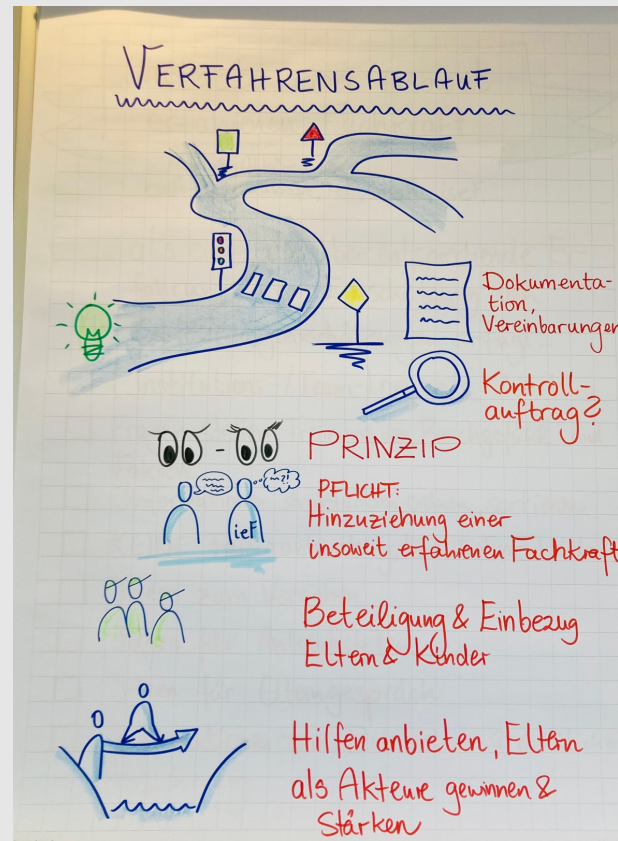 VERFAHRENSABLAUF
Dokumenta-
tion,
Vereinbarungen
Kontroll-
auftrag?
PRINZIP
?!
PFLICHT:
ieF
Hinzuziehung einer
insoweit erfahrenen Fachkraft
Beteiligung & Einbezug
Eltern & Kinder
Hilfen anbieten, Eltern
als Akteure gewinnen &
Stärken